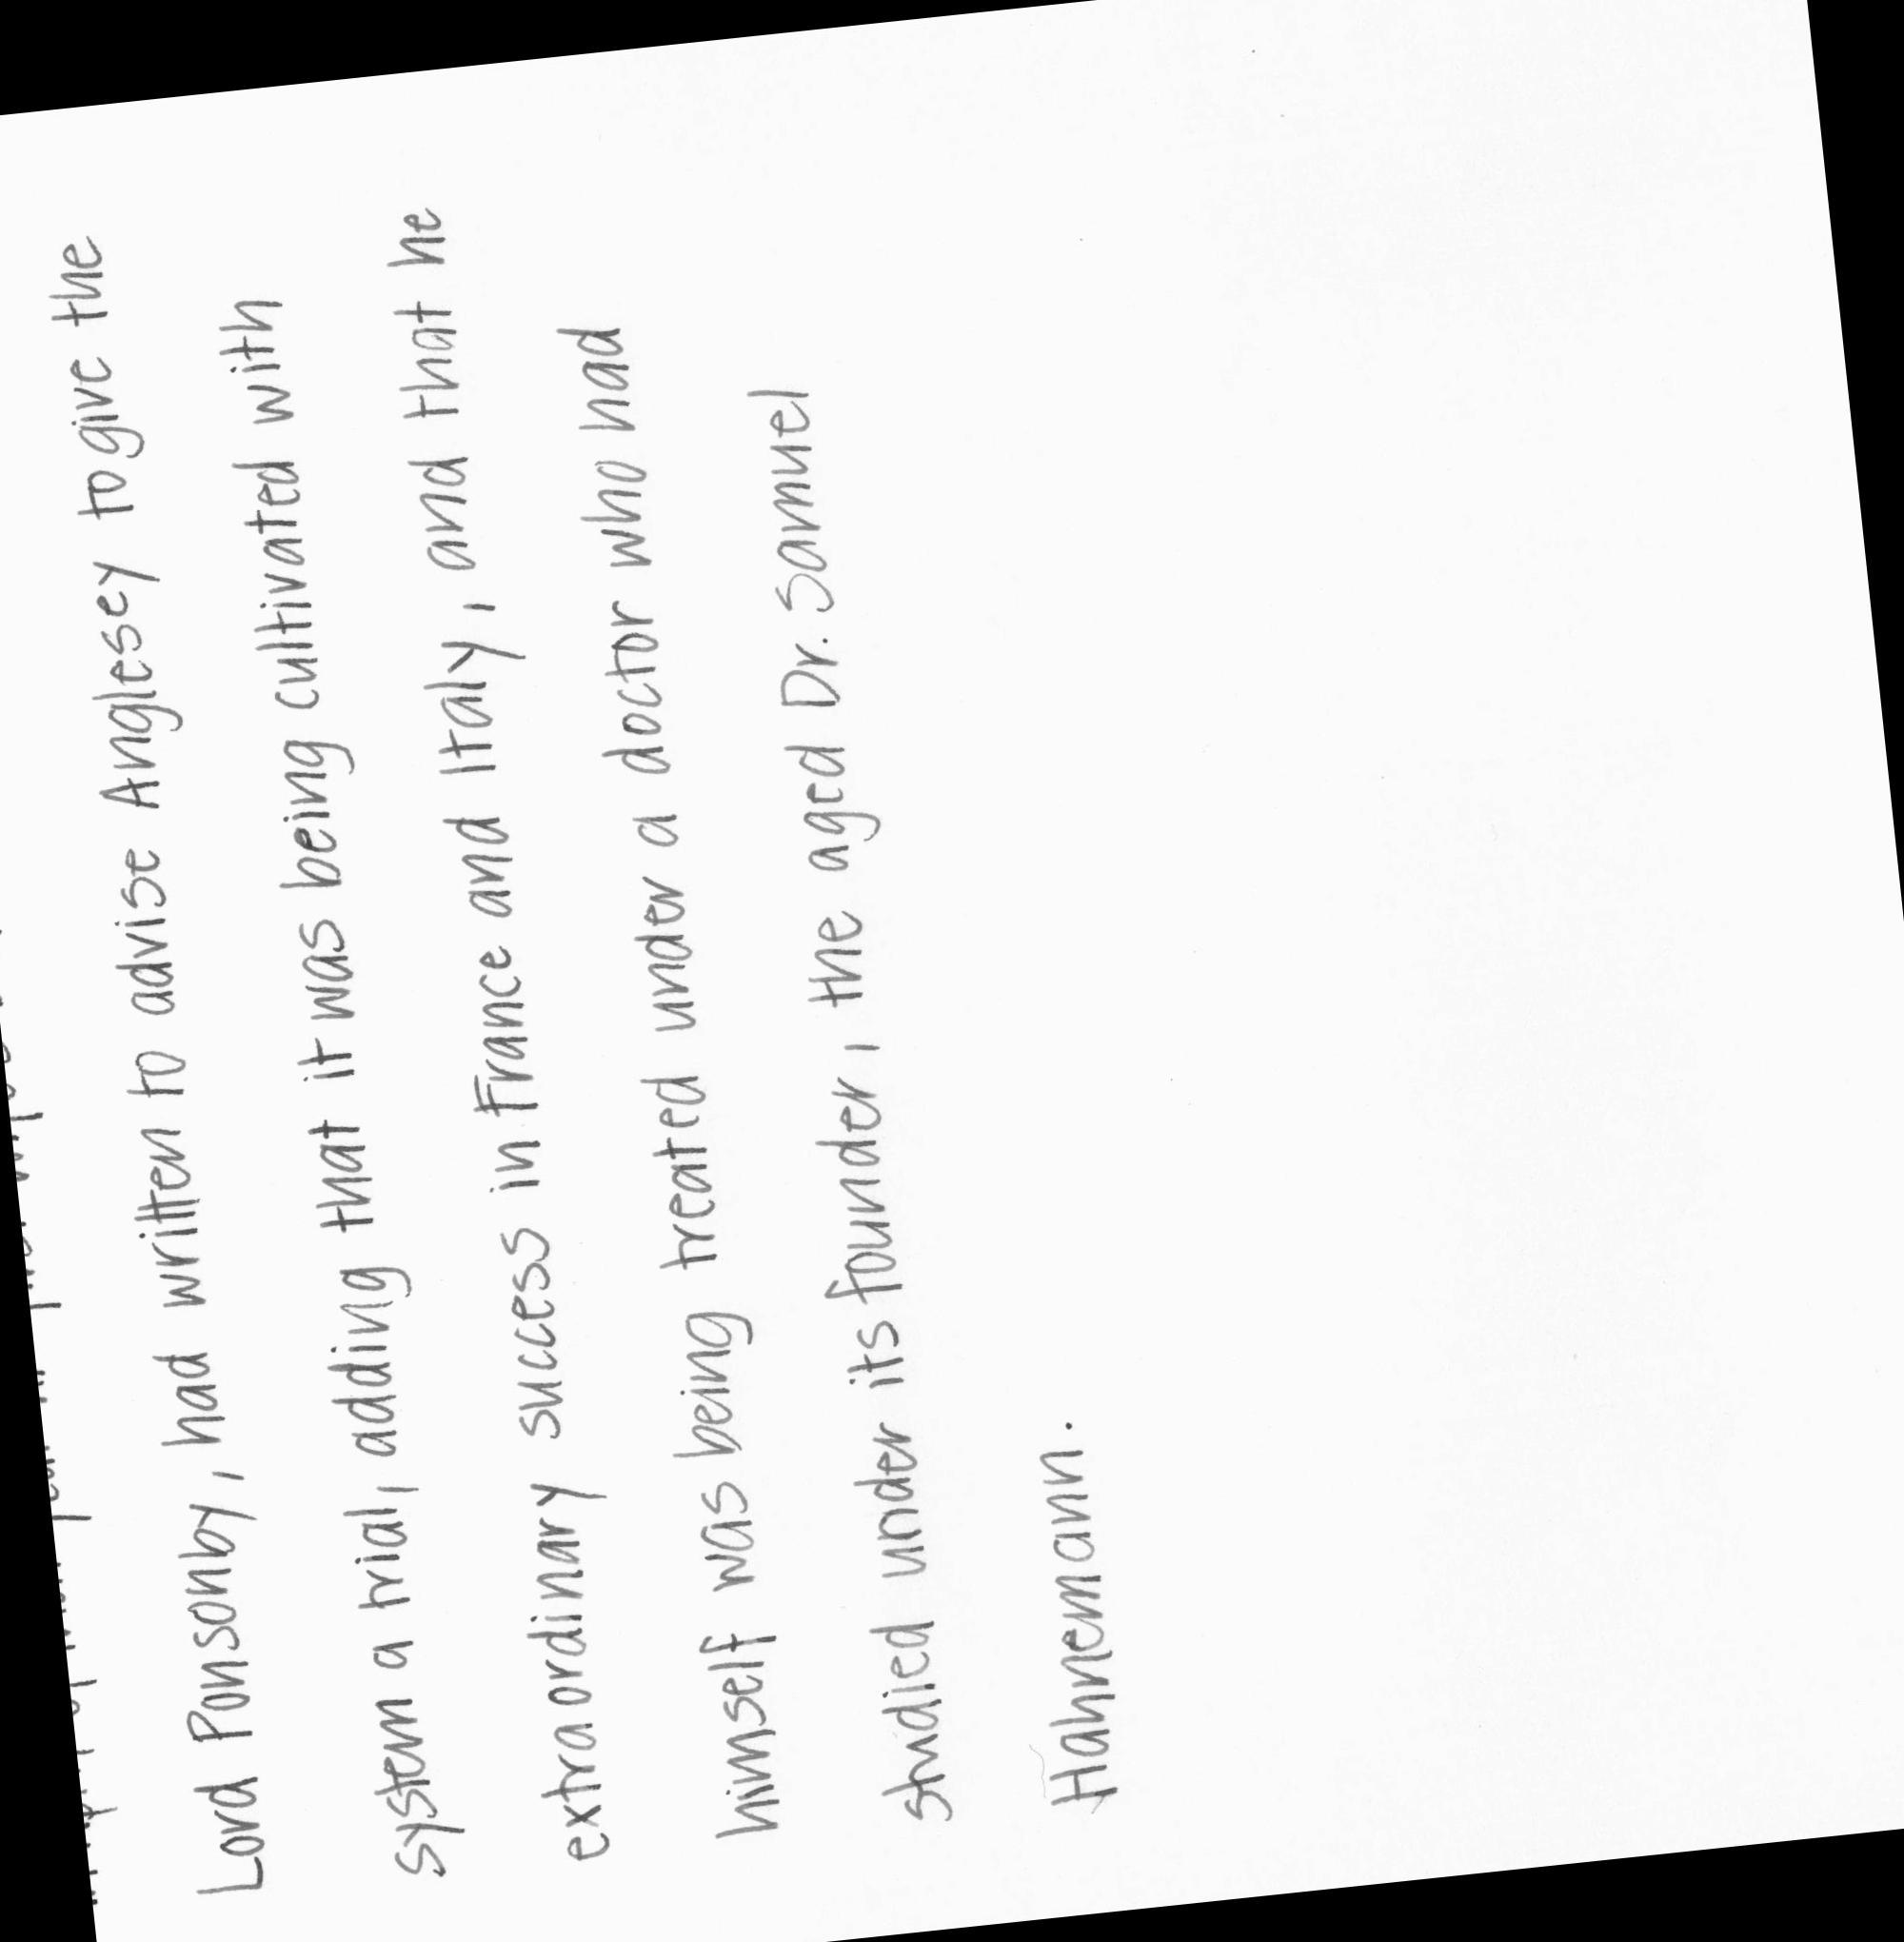 Lord Ponsonby, had written to advise Anglesey to give the
system a trial, adding that it was being cultivated with
extraordinary success in France and Italy, and that he
himself was being treated under a doctor who had
studied under its founder, the aged Dr. Samuel
Hahnemann.